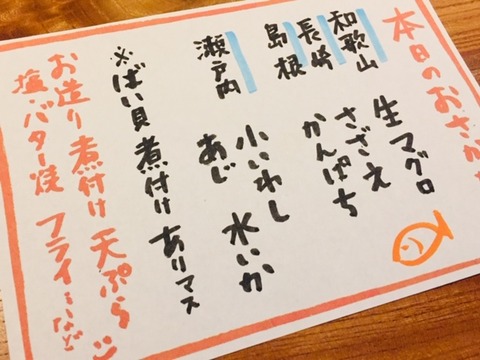 本日のおさかな
和歌山 生マグロ
長崎 さざえ
島根 かんぱち
瀬戸内 小いわし 水いか
あじ
※ばい貝 煮付け ありマス
お造り 煮付け 天ぷら
塩・バター焼 フライ…など